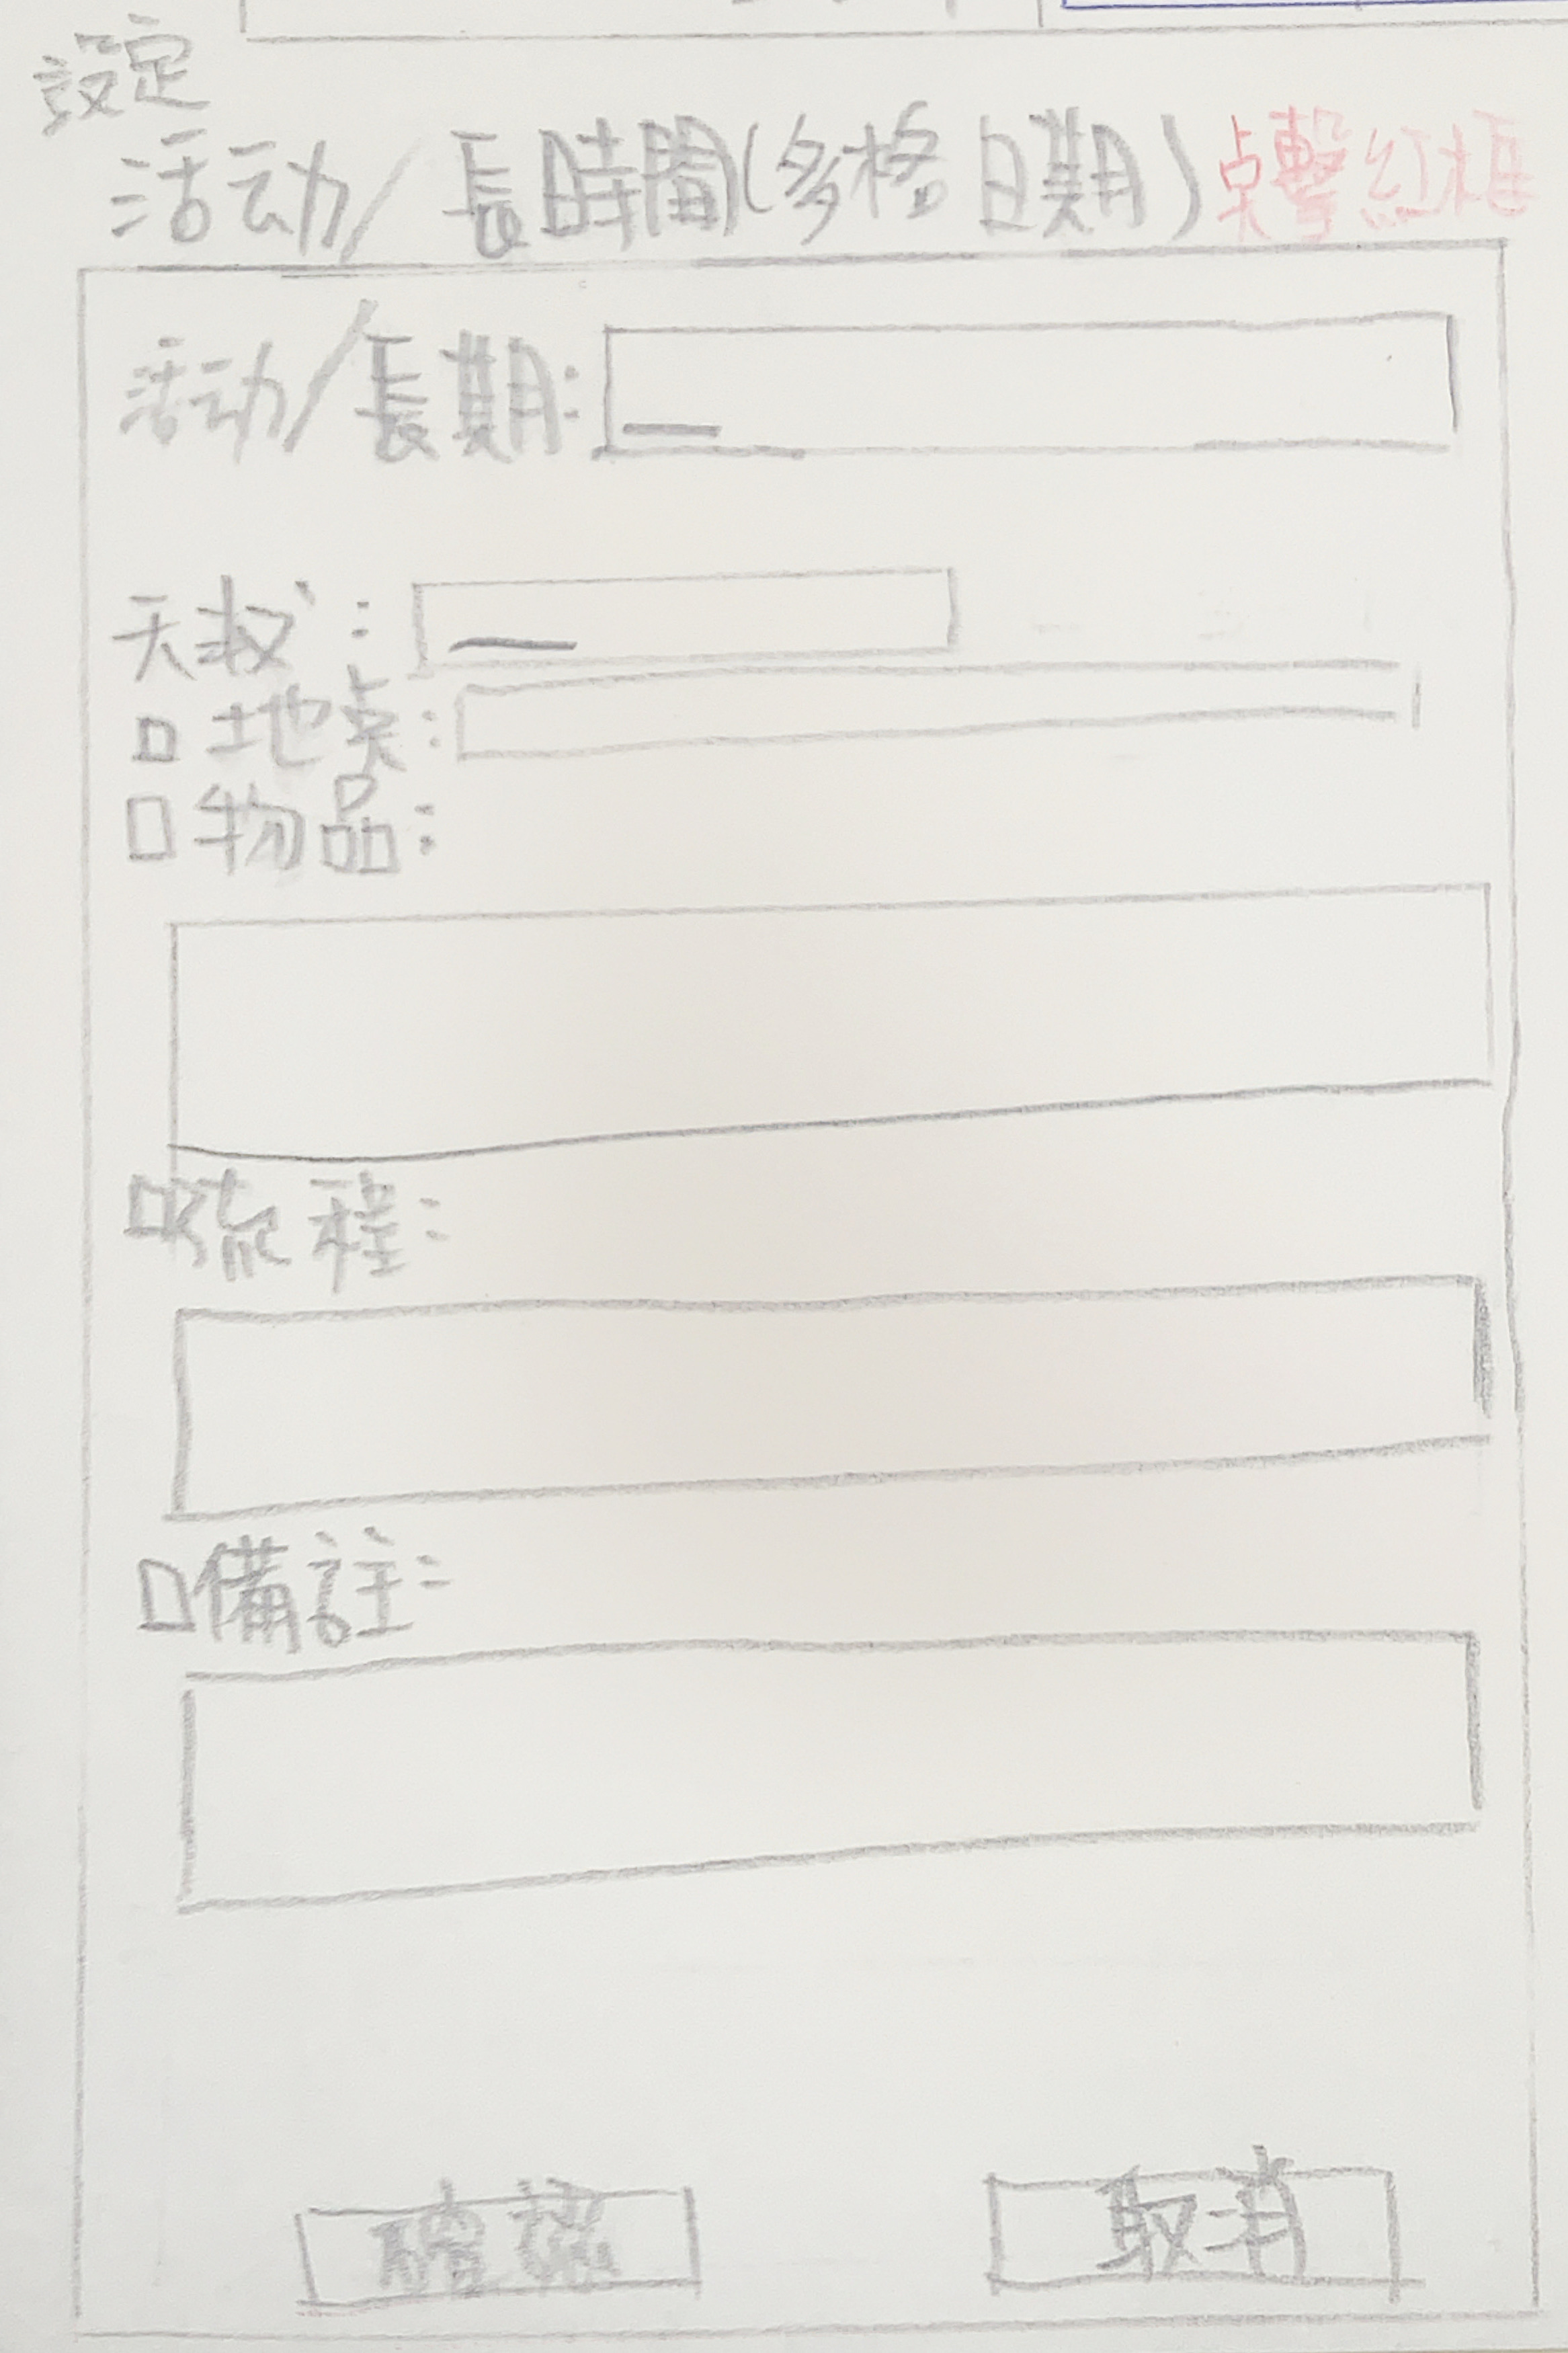 設定
活动/長時間(多格日期)点擊紅框
活动/長期:
天数:
地点:
物品:
流程:
備註:
確認 取消